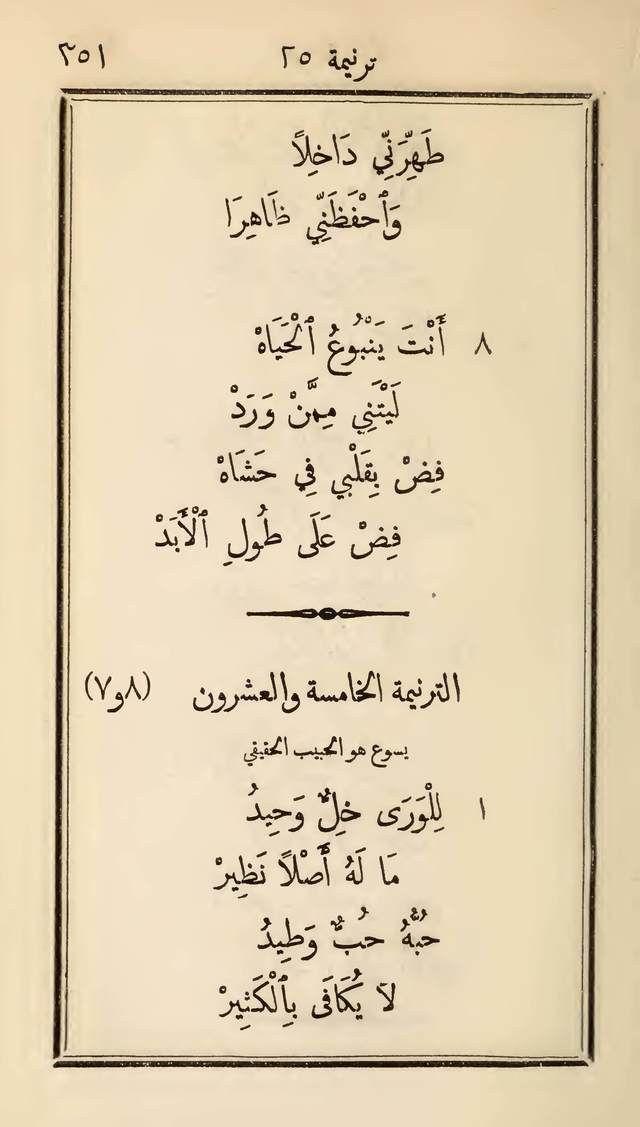 ترنيمة ٢٥ ٣٥١
طَهِّرَنِّي دَاخِلًا
وَٱحْفَظَنِّي ظَاهِرَا
٨ أَنْتَ يَنْبُوعُ ٱلْحَيَاهْ
لَيْتَنِي مِمَّنْ وَرَدْ
فِضْ بِقَلْبي فِي حَشَاهْ
فِضْ عَلَى طُولِ ٱلْأَبَدْ
الترنيمة الخامسة والعشرون (٨و٧)
يسوع هو الحبيب الحقيقي
١ لِلْوَرَى خِلٌّ وَحِيدُ
مَا لَهُ أَصْلًا نَظِيرْ
حُبُّهُ حُبٌّ وَطِيدُ
لاَ يُكَافَى بِٱلْكَثِيرْ